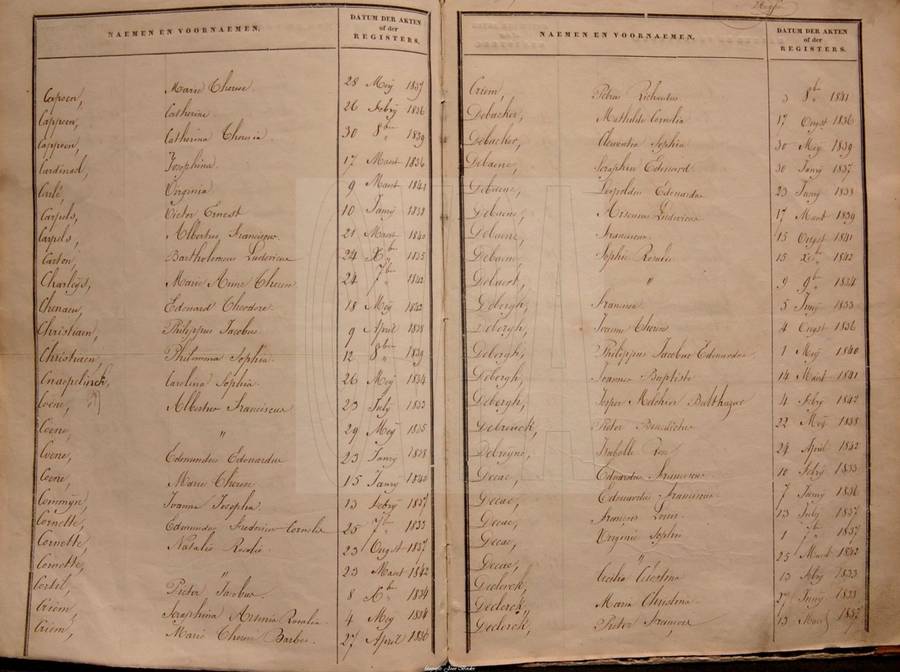 NAEMEN EN VOORNAEMEN.
DATUM DER AKTEN
of der
REGISTERS.
Capoen, Marie Therese 28 Meÿ 1837
Cappoen, Catharine 26 Febrÿ 1836
Cappoen, Catharina Theresia 30 8bre 1839
Cardinael, Josephina 17 Maart 1836
Carlé, Virginia 9 Maart 1841
Carpels, Victor Ernest 10 Janrÿ 1838
Carpels, Albertus Franciscus 21 Maart 1840
Carton, Bartholomeus Ludovicus 24 Xbre 1835
Marie Anne Therese 24 7bre 1842
Edouard Theodore 18 Meÿ 1842
Christiaen, Philippus Jacobus 9 April 1838
Christiaen, Philomena Sophia 12 8bre 1839
Cnaepelinck, Carolina Sophia 26 Meÿ 1834
Coene, Albertus Franciscus 23 July 1833
Coene, " 29 Meÿ 1835
Coene, Edmundus Edouardus 23 Janrÿ 1838
Coene, Marie Therese 15 Janrÿ 1840
Commyn, Joanna Josepha 13 Febrÿ 1837
Cornette, Edmundus Frederica Cornelia 25 7bre 1833
Cornette, Natalia Rosalia 23 Ougst 1837
Cornette, " 23 Maart 1842
Pieter Jacobus 8 Xbre 1834
Criem, Seraphina Rosalia 4 Meÿ 1834
Criem, Marie Therese Barbe 27 April 1836
NAEMEN EN VOORNAEMEN.
DATUM DER AKTEN
of der
REGISTERS.
Criem, Petrus Richardus 3 8bre 1841
Debacker, Mathilde Cornelia 17 Ougst 1836
Debacker, Clementia Sophia 30 Meÿ 1839
Debaene, Seraphin Edouard 30 Janrÿ 1837
Debaene, Leopoldus Edouardus 23 Janrÿ 1838
Debaene, Arsenius Ludovicus 17 Maart 1839
Debaene, Franciscus 15 Ougst 1841
Debaene, Sophie Rosalie 15 1842
Debaert, " 9 9bre 1834
Debergh, Francisca 5 1833
Debergh, Joanna Therese 4 Ougst 1836
Debergh, Philippus Jacobus Edouardus 1 Meÿ 1840
Debergh, Joannes Baptiste 14 Maart 1841
Debergh, Melchior Balthazar 4 Febry 1842
Debrinck, Pieter Benedictus 22 Meÿ 1838
Isabelle Rose 24 April 1842
Decae, Eduardus Franciscus 10 Febrÿ 1833
Decae, Edouardus Franciscus 7 Janrÿ 1836
Decae, François Louis 13 July 1837
Decae, Virginie Sophie 1 7bre 1837
Decae, " 25 Maart 1842
Declerck, Cecilia Celestina 13 1833
Declerck, Maria Christina 27 1833
Declerck, Pieter François 13 Maart 1837